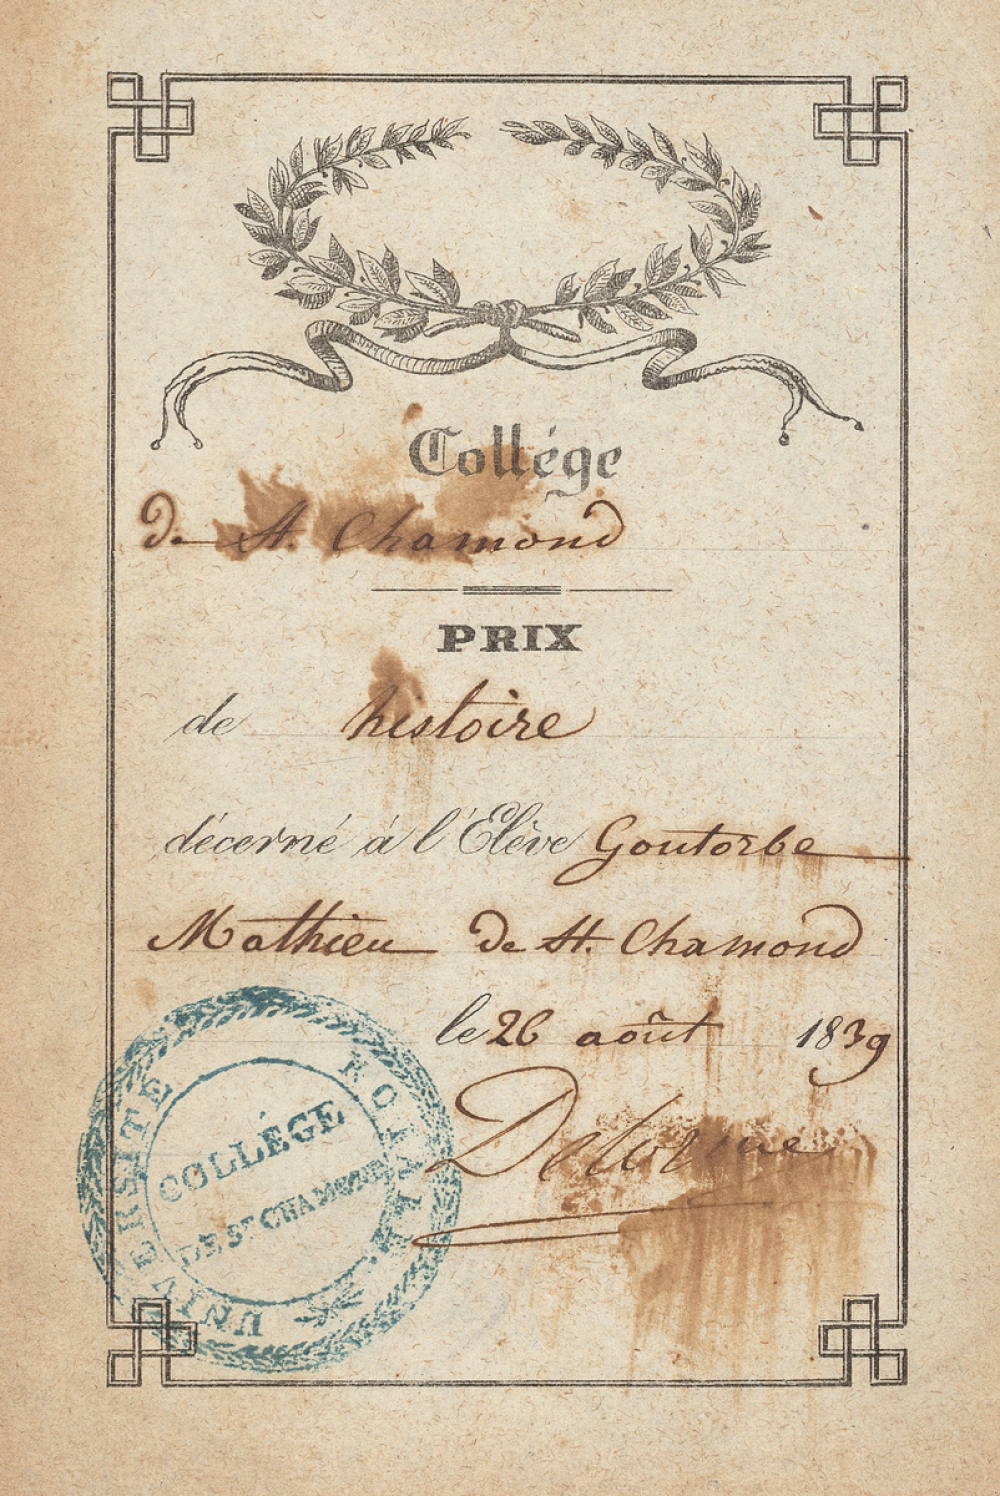 Collége
De St. Chamond
PRIX
de histoire
décerné à l'Élève Goutorbe
Mathieu De St. Chamond
le 26 août 1839
Delorme
UNIVERSITÉ ROYALE
COLLÉGE
DE ST CHAMOND